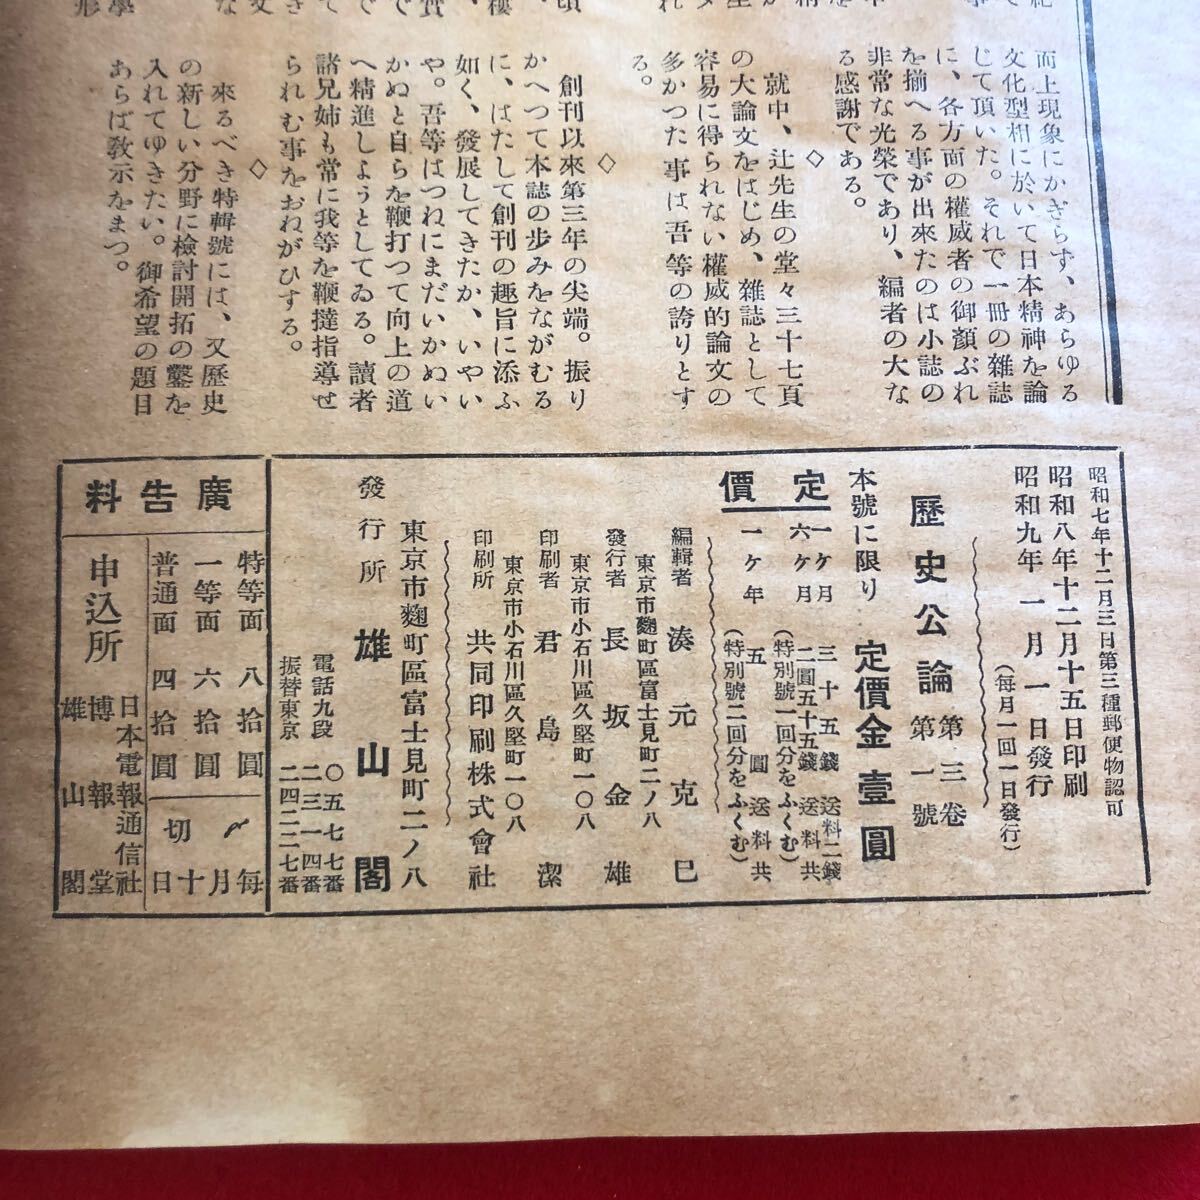 而上現象にかぎらず、あらゆる
文化型相に於いて日本精神を論
じて頂いた。それで一冊の雜誌
に、各方面の權威者の御顏ぶれ
を揃へる事が出來たのは小誌の
非常な光榮であり、編者の大な
る感謝である。
◇
就中、辻先生の堂々三十七頁
の大論文をはじめ、雜誌として
容易に得られない權威的論文の
多かつた事は吾等の誇りとす
る。
◇
創刊以來第三年の尖端。振り
かへつて本誌の步みをながむる
に、はたして創刊の趣旨に添ふ
如く、發展してきたか、いやい
や。吾等はつねにまだいかぬい
かぬと自らを鞭打つて向上の道
へ精進しようとしてゐる。讀者
諸兄姉も常に我等を鞭撻指導せ
られむ事をおねがひする。
◇
來るべき特輯號には、又歷史
の新しい分野に檢討開拓の鑿を
入れてゆきたい。御希望の題目
あらば敎示をまつ。
昭和七年十二月三日第三種郵便物認可
昭和八年十二月十五日印刷
昭和九年一月一日發行
(每月一回一日發行)
歷史公論 第三卷 第一號
本號に限り 定價金壹圓
定價
一ヶ月 三十五錢 送料二錢
六ヶ月 二圓五十五錢 送料共
(特別號一回分をふくむ)
一ヶ年 五圓 送料共
(特別號二回分をふくむ)
編輯者 湊元克巳
東京市麴町區富士見町二ノ八
發行者 長坂金雄
東京市小石川區久堅町一〇八
印刷者 君島潔
東京市小石川區久堅町一〇八
印刷所 共同印刷株式會社
東京市麴町區富士見町二ノ八
發行所 雄山閣
電話九段 〇五七七番
二三一四番
振替東京 二四二二七番
廣告料
特等面 八拾圓
一等面 六拾圓
普通面 四拾圓
每月十日
〆切
申込所
日本電報通信社
博報堂
雄山閣